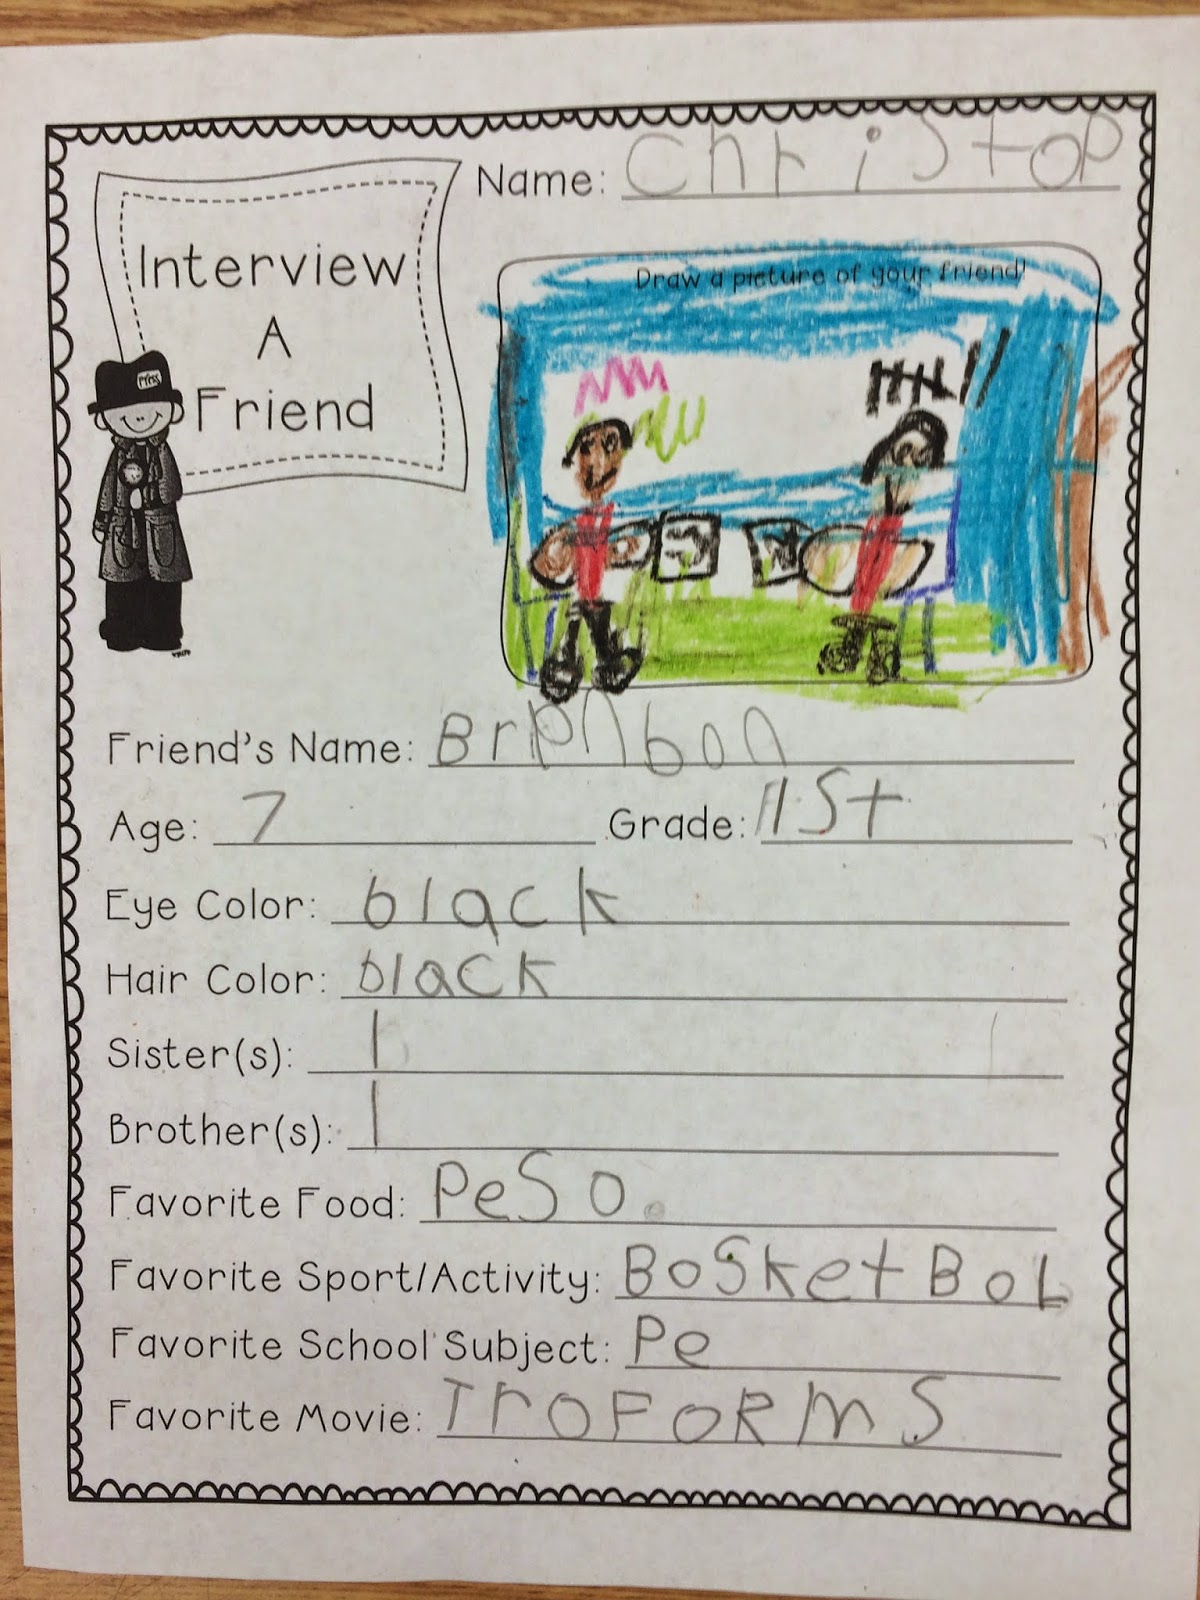 Name: ChriStop
Interview
A
Friend
Press
Draw a picture of your friend!
Friend's Name: Brpnbon
Age: 7 Grade: 1st
Eye Color: black
Hair Color: black
Sister(s): 1
Brother(s): 1
Favorite Food: PeSo.
Favorite Sport/Activity: BoSketBoL
Favorite School Subject: Pe
Favorite Movie: TroFoRmS